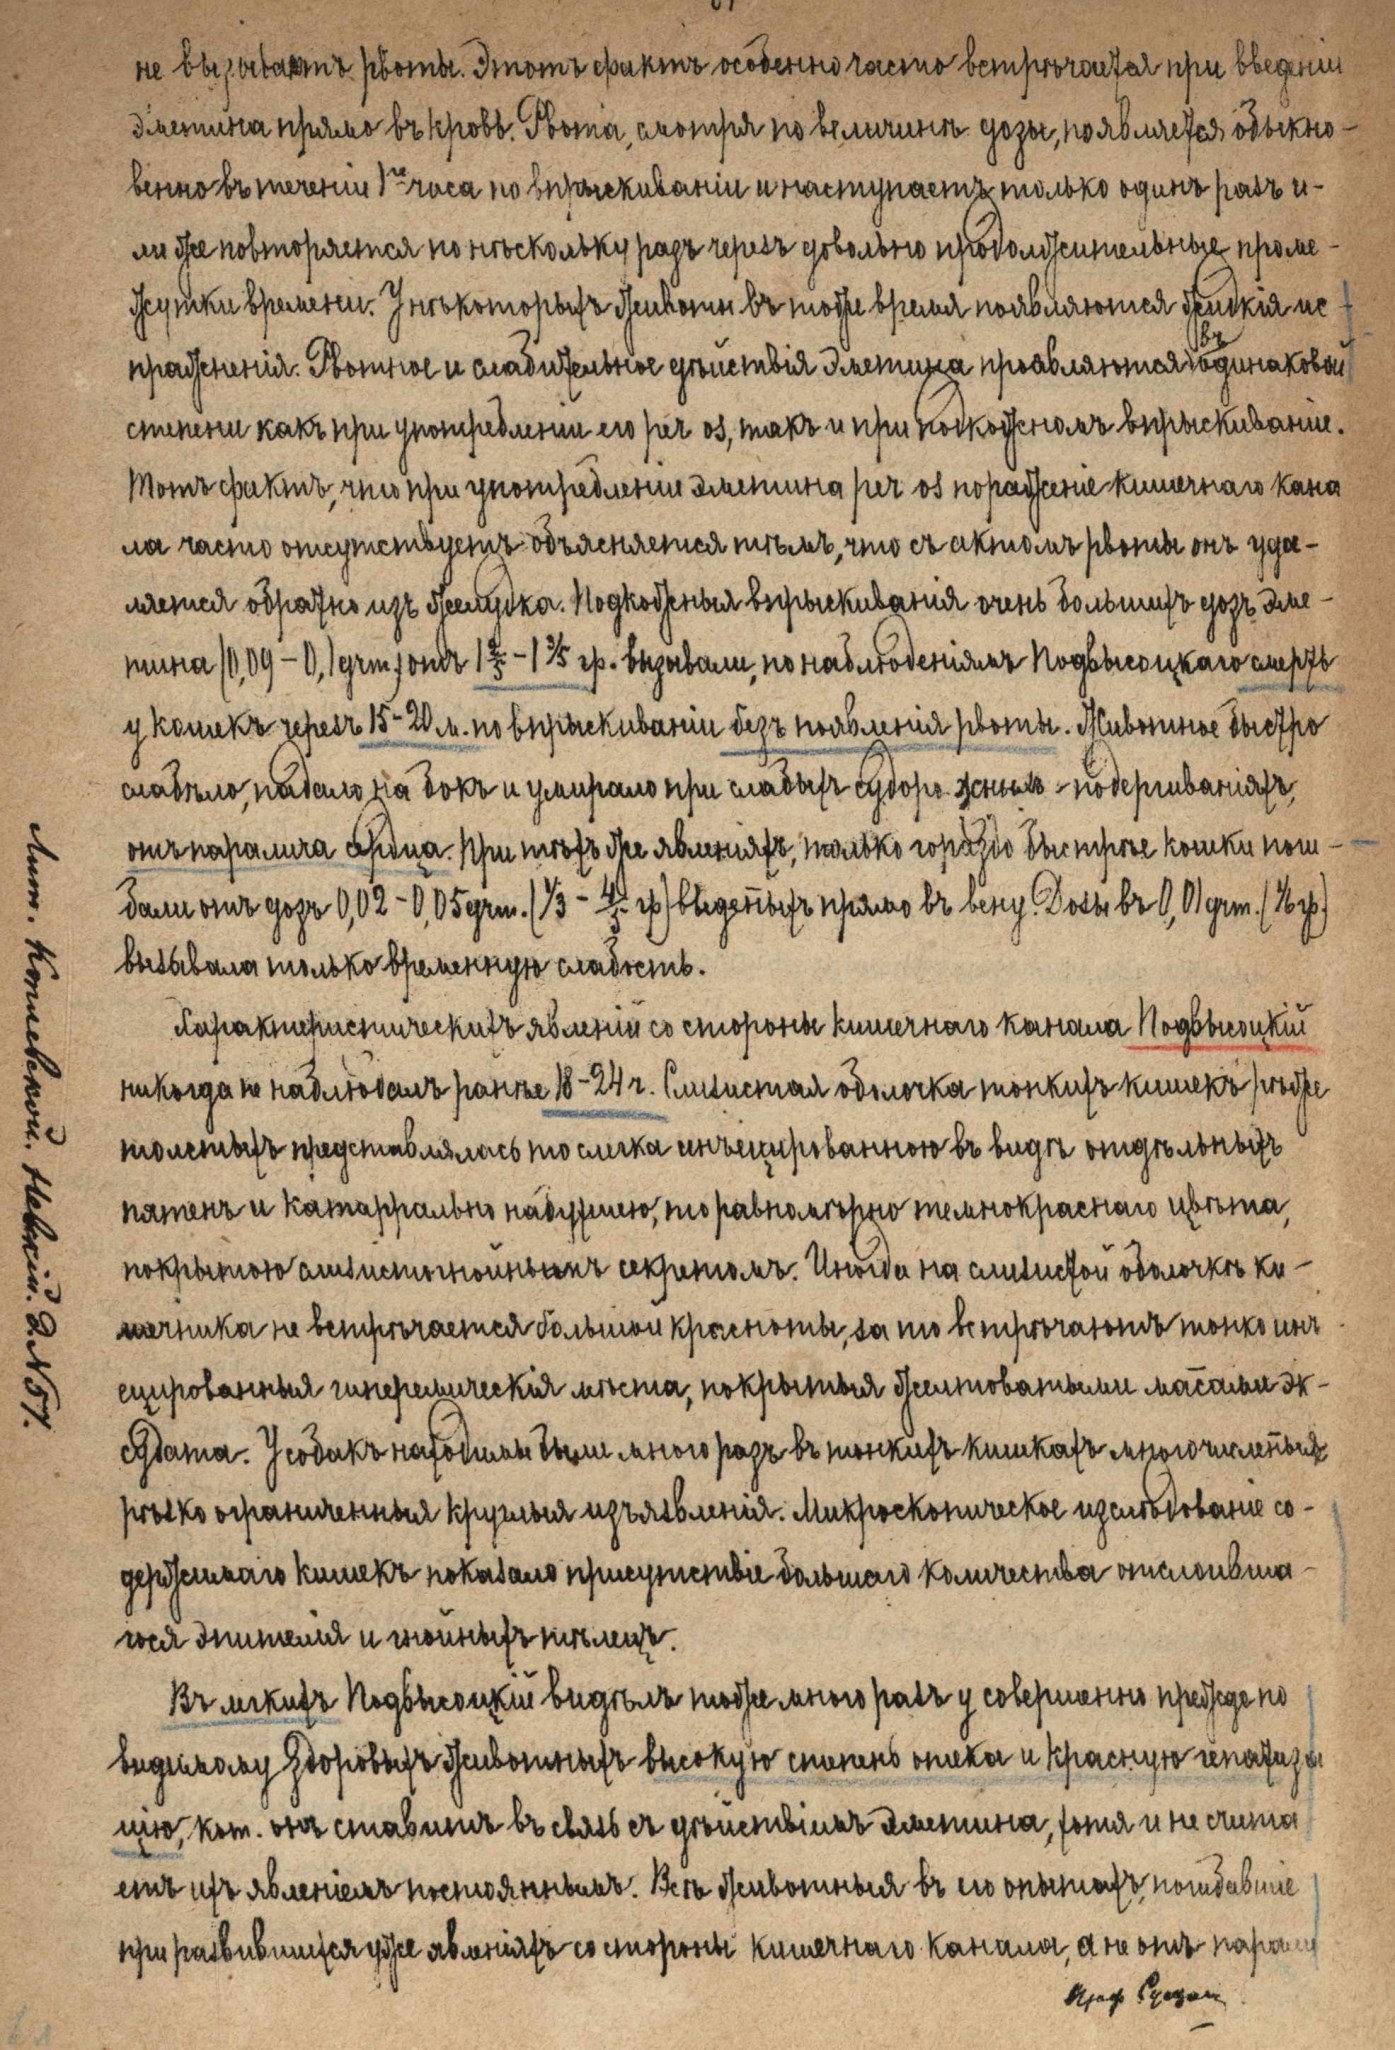 не вызываетъ рвоты. Этотъ фактъ особенно часто встрѣчается при введеніи
эметина прямо въ кровь. Рвота, смотря по величинѣ дозы, появляется обыкно-
венно въ теченіи 1го часа по впрыскиваніи и наступаетъ только одинъ разъ и-
ли же повторяется по нѣскольку разъ черезъ довольно продолжительные проме-
жутки времени. У нѣкоторыхъ животн. въ тоже время появляются жидкія ис
пражненія. Рвотное и слабительное дѣйствія эметина проявляются въ одинаковой
степени какъ при употребленіи его per os, такъ и при подкожномъ впрыскиваніе.
Тотъ фактъ, что при употребленіе эметина per os пораженіе кишечнаго кана
ла часто отсутствуетъ объясняется тѣмъ, что съ актомъ рвоты онъ уда-
ляется обратно изъ желудка. Подкожныя впрыскиванія очень большихъ дозъ эме-
тина (0,09 – 0,1 grm.) отъ 1 2/5 – 1 3/5 гр. вызывали, по наблюденіямъ Подвысоцкаго смерть
у кошекъ черезъ 15-20 м. по впрыскиваніи безъ появленія рвоты. Животное быстро
слабѣло, падало на бокъ и умирало при слабыхъ судорожныхъ подергиваніяхъ,
отъ паралича сердца. При тѣхъ же явленіяхъ, только гораздо быстрѣе кошки поги-
бали отъ дозъ 0,02 – 0,05 grm. (1/3 – 4/5 гр) введеныхъ прямо въ вену. Дозы въ 0,01 grm. (1/6 гр.)
вызывала только временную слабость.
Характеристическихъ явленій со стороны кишечнаго канала Подвысоцкій
никогда не наблюдалъ ранѣе 18-24 ч. Слизистая оболочка тонкихъ кишекъ рѣже
толстыхъ представлялась то слегка инъецированною въ видѣ отдѣльныхъ
пятенъ и катаррально набухшею, то равномѣрно темнокраснаго цвѣта,
покрытою слизистогнойнымъ секретомъ. Иногда на слизистой оболочкѣ ки-
шечника не встрѣчается большой красноты, за то встрѣчаютъ тонко инъ
ецированныя гиперемическія мѣста, покрытыя желтоватыми масами эк-
судата. У собакъ находимы были много разъ въ тонкихъ кишкахъ многочисленыя
рѣзко ограниченныя круглыя изъязвленія. Микроскопическое изслѣдованіе со-
держимаго кишекъ показало присутствіе большаго количества отслоивша-
гося эпителія и гнойныхъ тѣлецъ.
Въ легкихъ Подвысоцкій видѣлъ тоже много разъ у совершенно прежде по
видимому здоровыхъ животныхъ высокую степень отека и красную гепатиза
цію, кот. онъ ставитъ въ связь съ дѣйствіемъ эметина, хотя и не счита
етъ ихъ явленіемъ постояннымъ. Всѣ животныя въ его опытахъ, погибавшіе
при развившихся уже явленіяхъ со стороны кишечнаго канала, а не отъ парали
Проф Сущин
Лит. Комевской. Невскій. д. № 57.